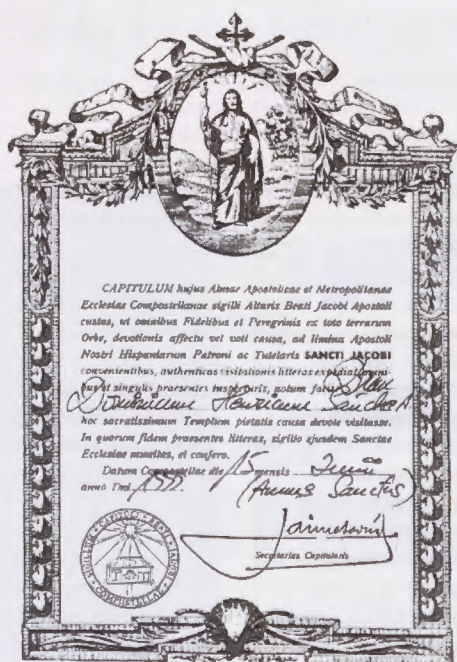 CAPITULUM hujus Almae Apostolicae et Metropolitanae
Ecclesiae Compostellanae sigilli Altaris Beati Jacobi Apostoli
custos, ut omnibus Fidelibus et Peregrinis ex toto terrarum
Orbe, devotionis affectu vel voti causa, ad limina Apostoli
Nostri Hispaniarum Patroni ac Tutelaris SANCTI JACOBI
convenientibus, authenticas visitationis litteras expediat, omni-
bus et singulis praesentes inspecturis, notum facit
hoc sacratissimum Templum pietatis causa devote visitasse.
In quorum fidem praesentes litteras, sigillo ejusdem Sanctae
Ecclesiae munitas, ei confero.
Datum Compostellae die 15 mensis
anno Dni 1999. (Annus Sanctus)
Secretarius Capitularis